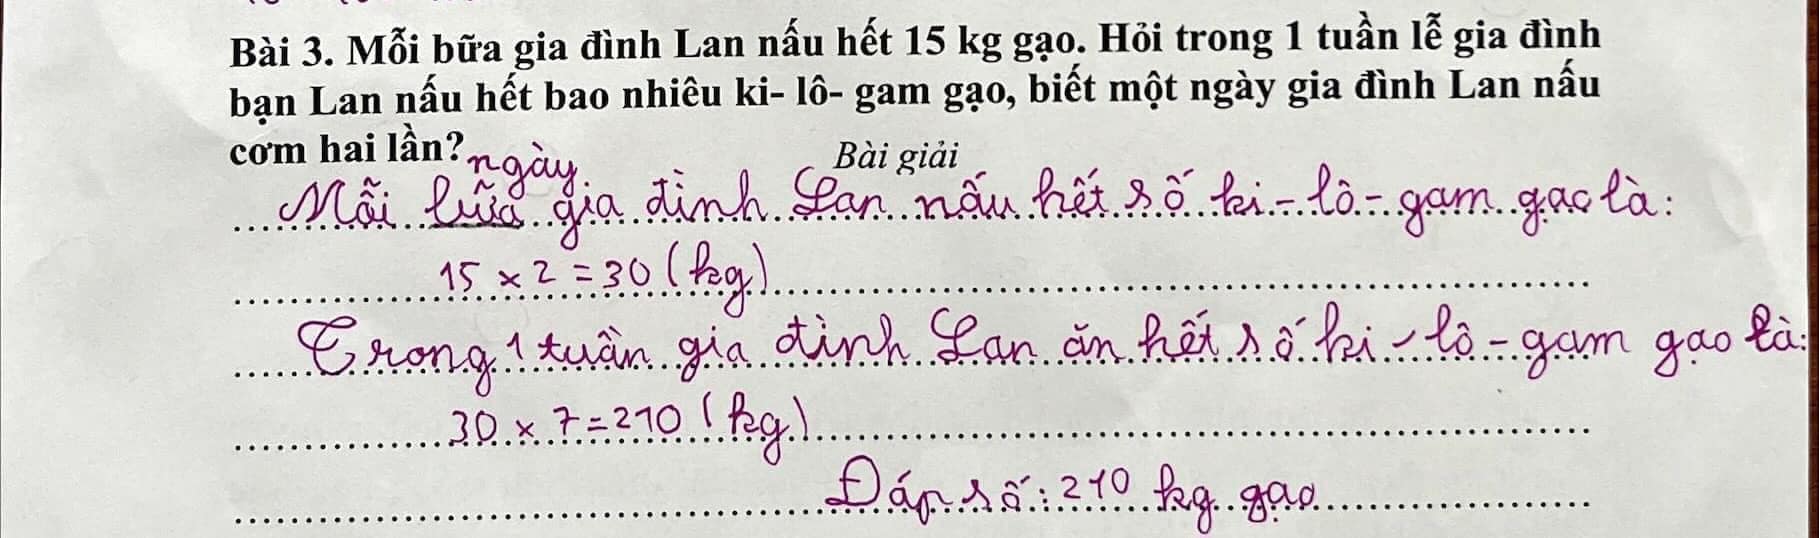 Bài 3. Mỗi bữa gia đình Lan nấu hết 15 kg gạo. Hỏi trong 1 tuần lễ gia đình
bạn Lan nấu hết bao nhiêu ki- lô- gam gạo, biết một ngày gia đình Lan nấu
cơm hai lần?
Bài giải
ngày
Mỗi bữa gia đình Lan nấu hết số ki-lô-gam gạo là:
15 x 2 = 30 (kg)
Trong 1 tuần gia đình Lan ăn hết số ki-lô-gam gạo là:
30 x 7 = 210 (kg)
Đáp số: 210 kg gạo